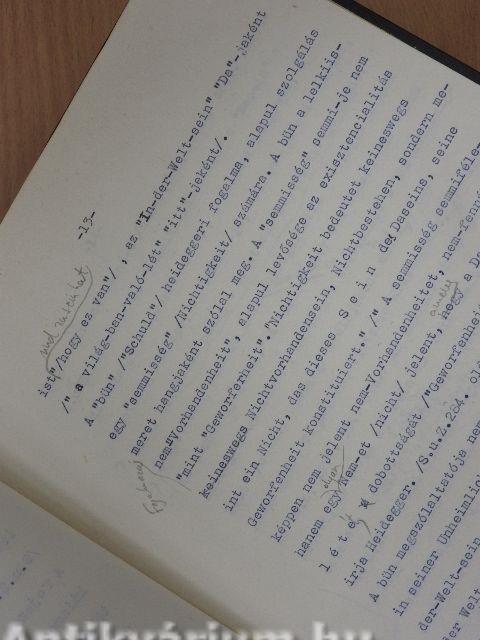 -13-
ist"/hogy ez van"/ , az "In-der-Welt-sein" "Da"-jaként
/" a világ-ban-való-lét" "itt"-jeként/.
A "bün" /"Schuld"/ heideggeri fogalma, alapul szolgálás
egy "semmisség" /Nichtigkeit/ számára. A bün a lelkiis-
meret hangjaként szólal meg. A "semmisség" semmi-je nem
nem"Vorhandenheit", alapul levősége az exisztencialitás
"mint "Geworferheit"."Nichtigkeit bedeutet keineswegs
keineswegs Nichtvorhandensein, Nichtbestehen, sondern me-
int ein Nicht, das dieses S e i n des Daseins, seine
Geworfenheit konstituiert." /" A semmisség semmiféle-
képpen nem jelent nem-Vorhandenheitet, nem-fenná
amely
hanem egy olyan Nem-et /nicht/ jelent, hogy a Da
l é t é dobottságát /"Geworfenhei
irja Heidegger. /S.u.Z.284. old
A bün megszólaltatója nem
in seiner Unheimlic
der-Welt-sein
der Welt
Antikvárium.hu